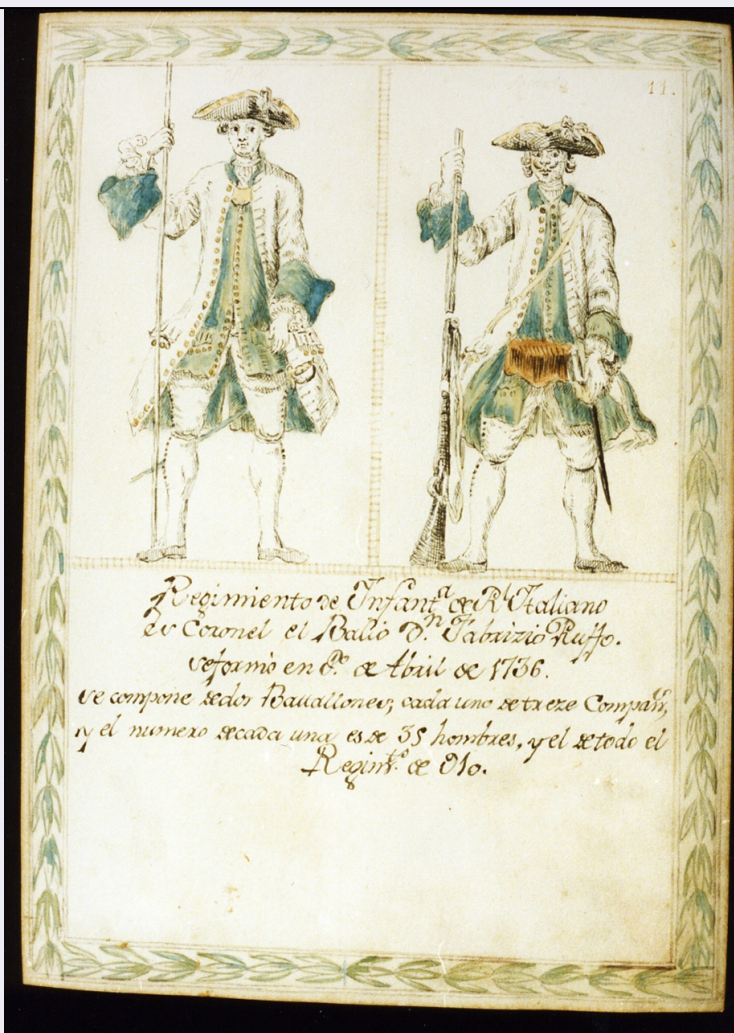 11.
Regimiento de Infant.ª de R.l Italiano
es Coronel el Balio D.n Fabrizio Ruffo.
se formó en P.º de Abril de 1736.
se compone de dos Batallones; cada uno de treze Compañ.s,
y el numero de cada una es de 35 hombres, y el de todo el
Regim.to de 910.